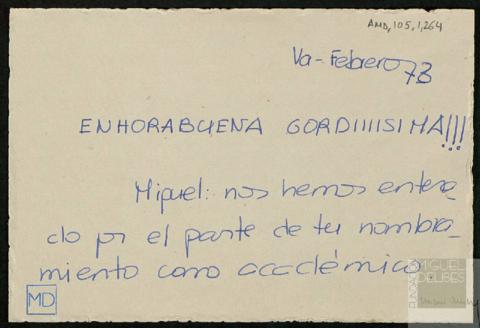 AMD, 105, 1, 264
Va - Febrero 73
ENHORABUENA GORDIIIISIMA!!!
Miguel: nos hemos entera-
do por el parte de tu nombra-
miento como académico
MD
FUNDACIÓN
MIGUEL
DELIBES